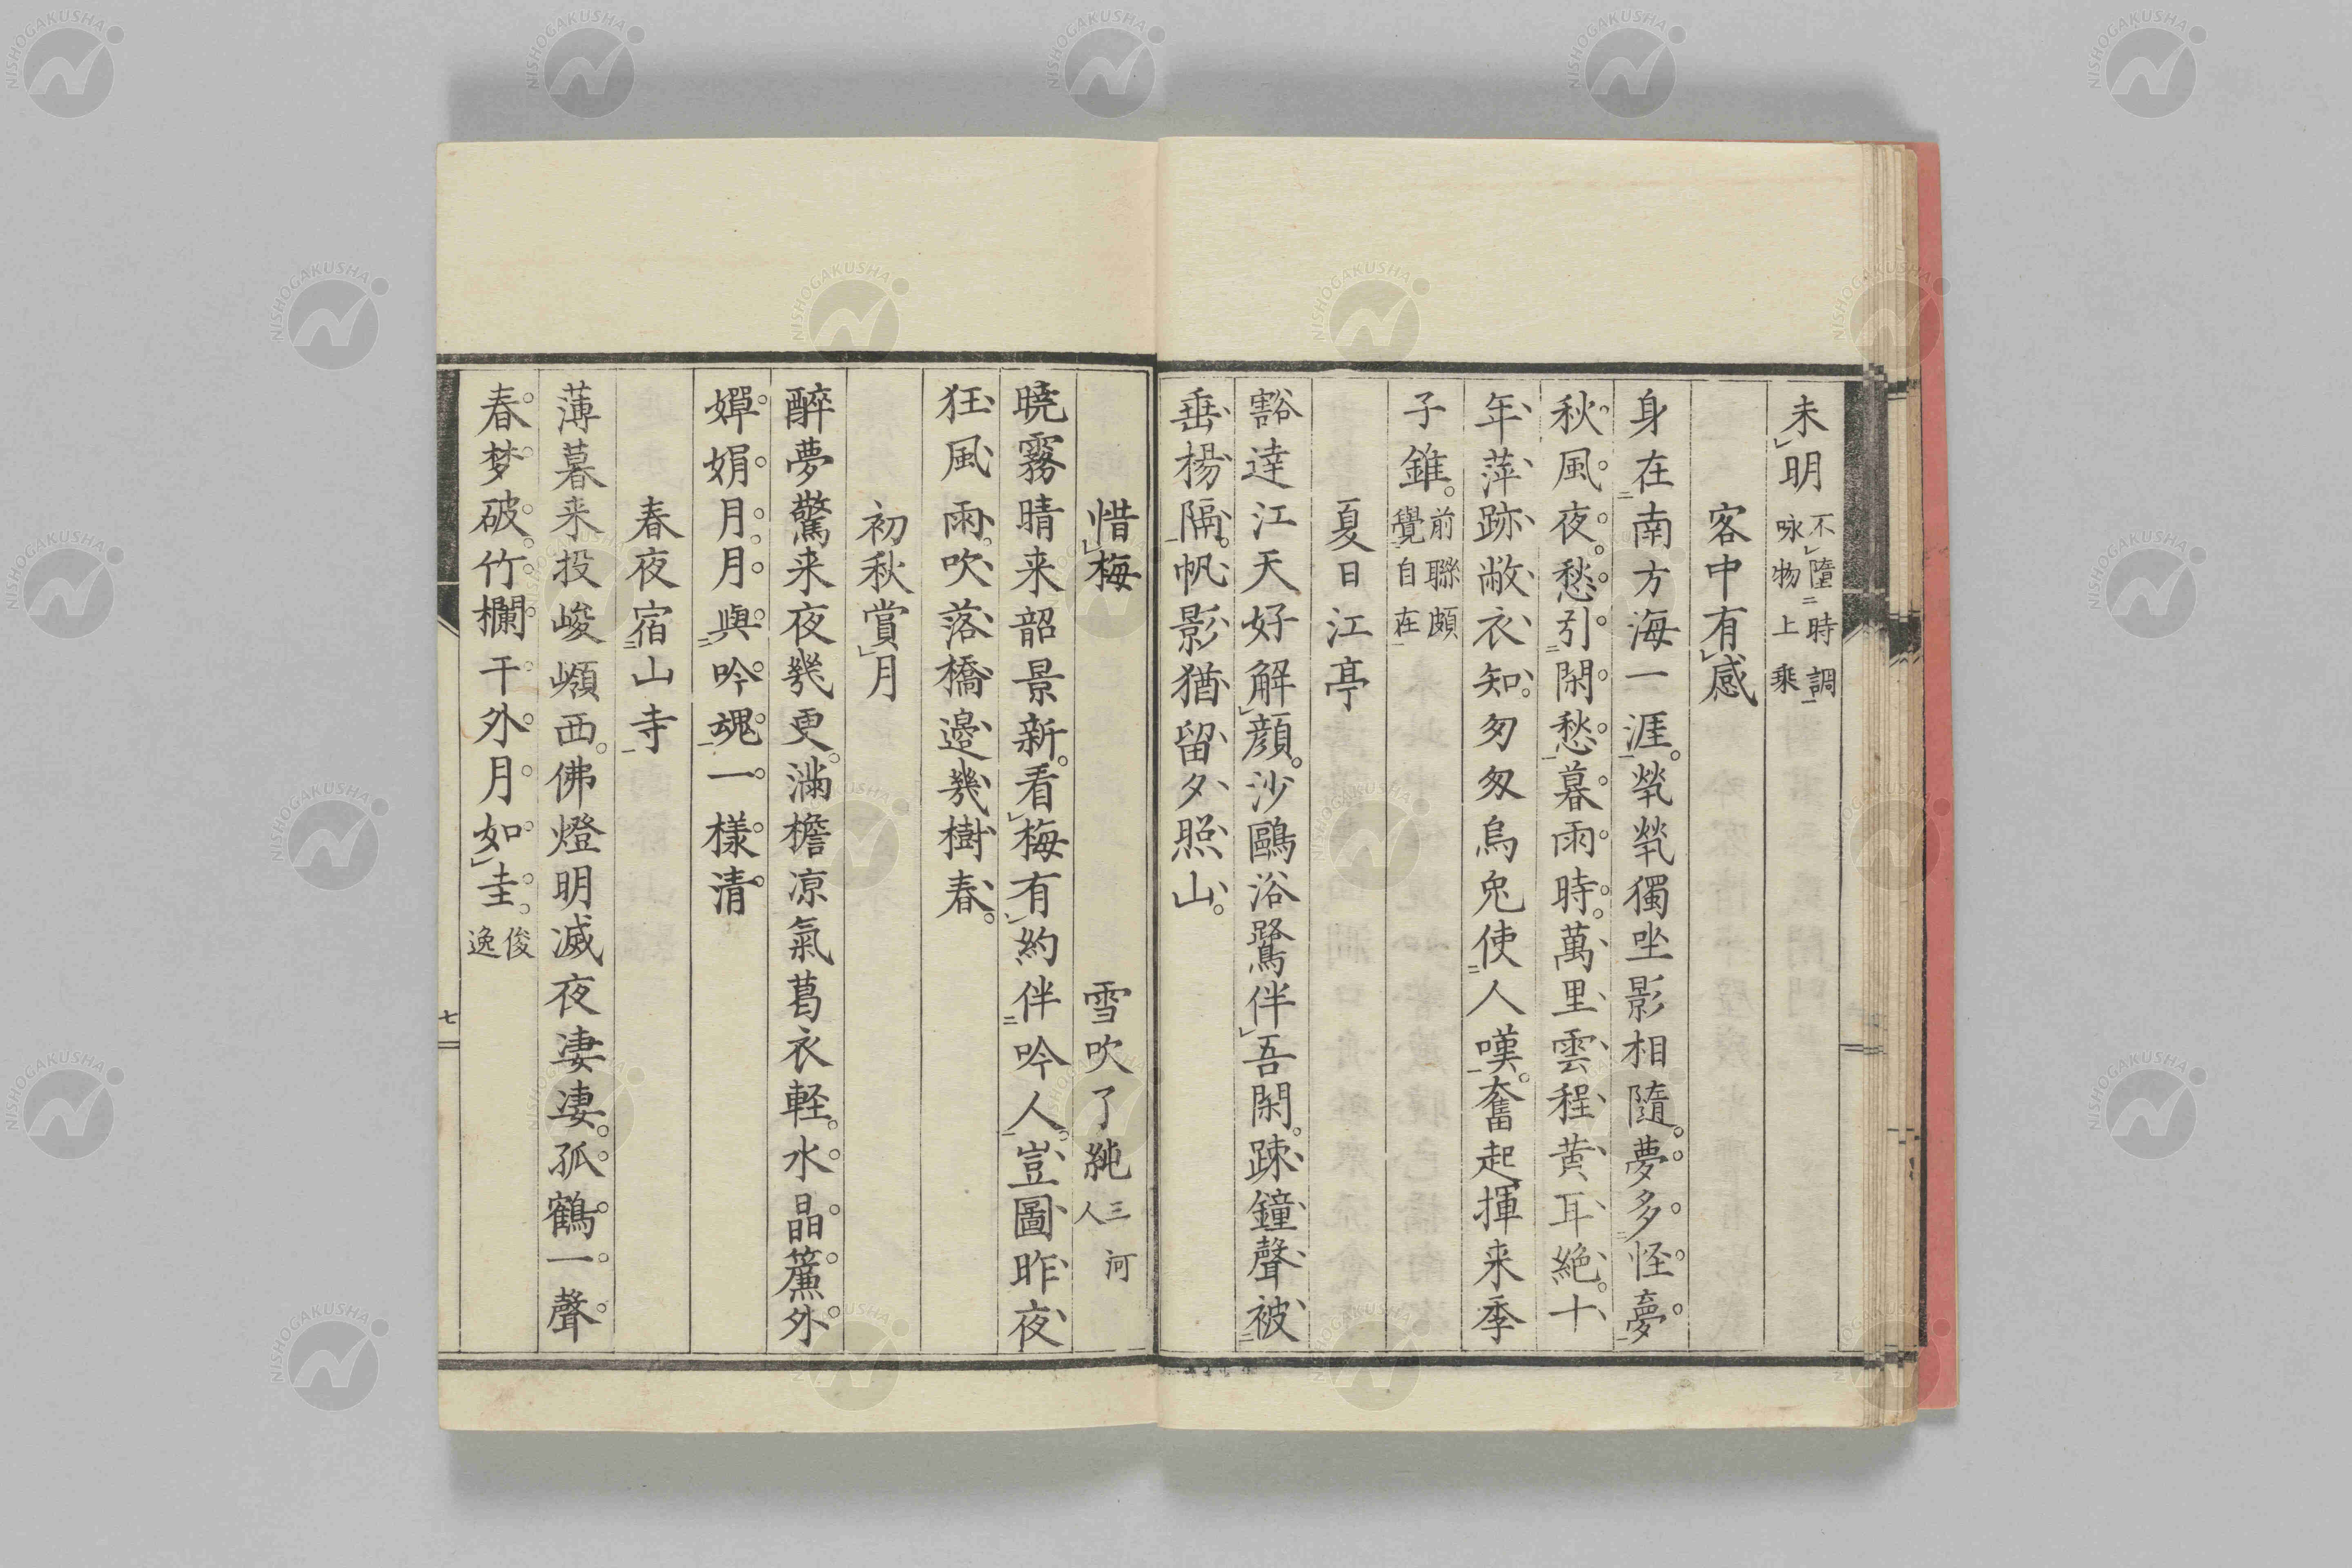 未明 不墮時調 咏物上乘
客中有感
身在南方海一涯。煢煢獨坐影相隨。夢多怪夢
秋風夜。愁引閑愁暮雨時。萬里雲程黄耳絶。十
年萍跡敝衣知。匆匆烏兔使人嘆。奮起揮来季
子錐。 前聯頗覺自在
夏日江亭
豁達江天好解顔。沙鷗浴鷺伴吾閑。踈鐘聲被
垂楊隔。帆影猶留夕照山。
惜梅 雪吹了純 三河人
暁霧晴来韶景新。看梅有約伴吟人。豈圖昨夜
狂風雨。吹落橋邉幾樹春。
初秋賞月
醉夢驚来夜幾更。滿檐凉氣葛衣軽。水晶簾外
嬋娟月。月與吟魂一様清
春夜宿山寺
薄暮来投峻嶺西。佛燈明滅夜凄凄。孤鶴一聲
春梦破。竹欄干外月如圭。 俊逸
七
NISHOGAKUSHA